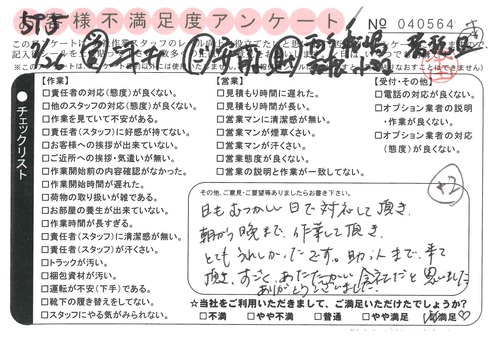 お客様不満足度アンケート
No 040564
チェックリスト
【作業】
□責任者の対応(態度)が良くない。
□他のスタッフの対応(態度)が良くない。
□作業を見ていて不安がある。
□責任者(スタッフ)に好感が持てない。
□お客様への挨拶が出来ていない。
□ご近所への挨拶・気遣いが無い。
□作業開始前の内容確認がなかった。
□作業開始時間が遅れた。
□荷物の取り扱いが雑である。
□お部屋の養生が出来ていない。
□作業時間が長すぎる。
□責任者(スタッフ)に清潔感が無い。
□責任者(スタッフ)が汗くさい。
□トラックが汚い。
□梱包資材が汚い。
□運転が不安(下手)である。
□靴下の履き替えをしてない。
□スタッフにやる気がみられない。
【営業】
□見積もり時間に遅れた。
□見積もり時間が長い。
□営業マンに清潔感が無い。
□営業マンが煙草くさい。
□営業マンが汗くさい。
□営業態度が良くない。
□営業の説明と作業が一致してない。
【受付・その他】
□電話の対応が良くない。
□オプション業者の説明
・作業が良くない。
□オプション業者の対応
(態度)が良くない。
その他、ご意見・ご要望等ありましたらお書き下さい。
+2
日もむつかしい日で対応して頂き、
朝から晩まで、作業して頂き、
とてもうれしかったです。助っ人まで来て
頂き、すごくあたたかい会社だと思いました
ありがとうございました。
☆当社をご利用いただきまして、ご満足いただけたでしょうか?
□不満 □やや不満 □普通 □やや満足 ☑満足♡